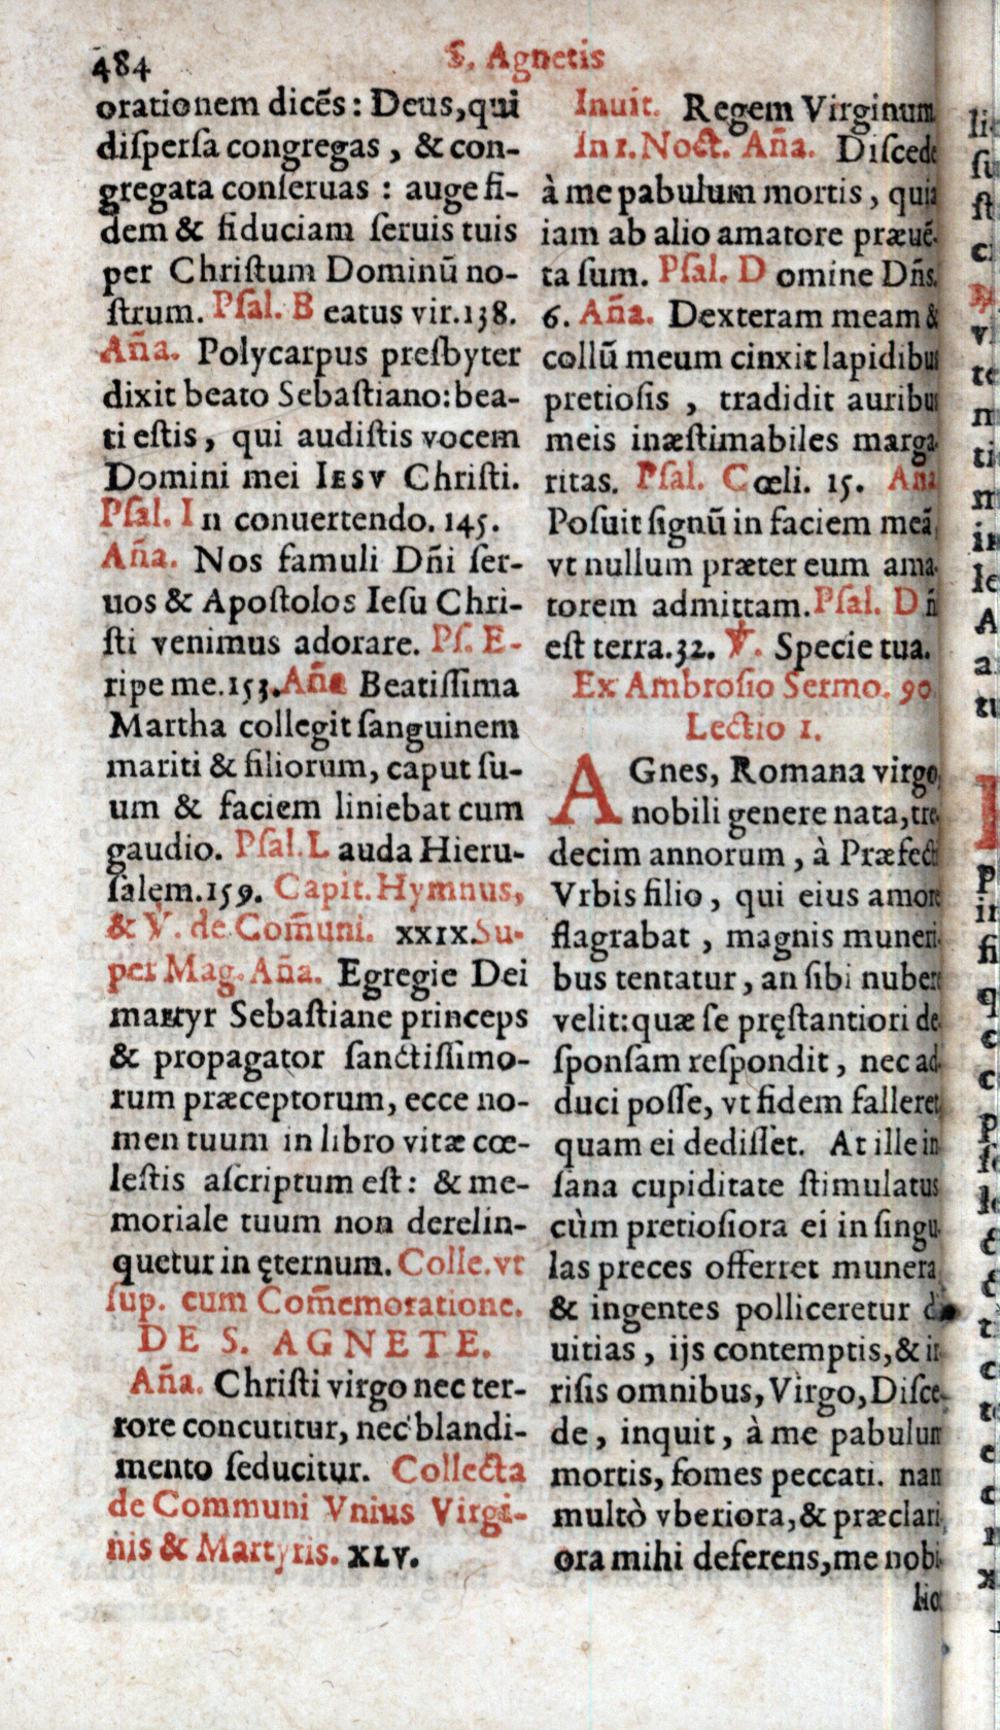 484
S. Agnetis
orationem dicēs: Deus, qui
diſperſa congregas, & con-
gregata conſeruas : auge fi-
dem & fiduciam ſeruis tuis
per Chriſtum Dominū no-
ſtrum. Pſal. B eatus vir.138.
Añā. Polycarpus preſbyter
dixit beato Sebaſtiano: bea-
ti eſtis, qui audiſtis vocem
Domini mei IESV Chriſti.
Pſal. I n conuertendo. 145.
Aña. Nos famuli Dñi ſer-
uos & Apoſtolos Ieſu Chri-
ſti venimus adorare. Pſ. E-
ripe me.153. Aña Beatiſſima
Martha collegit ſanguinem
mariti & filiorum, caput ſu-
um & faciem liniebat cum
gaudio. Pſal. L auda Hieru-
ſalem.159. Capit. Hymnus,
& V. de Com̄uni. XXIX. Su-
per Mag. Aña. Egregie Dei
martyr Sebaſtiane princeps
& propagator ſanctiſſimo-
rum præceptorum, ecce no-
men tuum in libro vitæ cœ-
leſtis aſcriptum eſt: & me-
moriale tuum non derelin-
quetur in ęternum. Colle. vt
ſup. cum Com̄emoratione.
DE S. AGNETE.
Aña. Chriſti virgo nec ter-
rore concutitur, nec blandi-
mento ſeducitur. Collecta
de Communi Vnius Virgi-
nis & Martyris. XLV.
Inuit. Regem Virginum
In 1. Noct. Aña. Diſcede
à me pabulum mortis, quia
iam ab alio amatore præuē-
ta ſum. Pſal. D omine Dñs.
6. Aña. Dexteram meam &
collū meum cinxit lapidibus
pretioſis , tradidit auribus
meis inæſtimabiles marga-
ritas. Pſal. C œli. 15. Aña
Poſuit ſignū in faciem meā,
vt nullum præter eum ama-
torem admittam. Pſal. D ñi
eſt terra.32. ℣. Specie tua.
Ex Ambroſio Sermo. 90.
Lectio 1.
A Gnes, Romana virgo,
nobili genere nata, tre-
decim annorum, à Præfecti
Vrbis filio, qui eius amore
flagrabat, magnis muneri-
bus tentatur, an ſibi nubere
velit: quæ ſe pręſtantiori de-
ſponſam reſpondit, nec ad-
duci poſſe, vt fidem falleret,
quam ei dediſſet. At ille in-
ſana cupiditate ſtimulatus
cùm pretioſiora ei in ſingu-
las preces offerret munera,
& ingentes polliceretur di-
uitias, ijs contemptis, & ir-
riſis omnibus, Virgo, Diſce-
de, inquit, à me pabulum
mortis, fomes peccati. nam
multò vberiora, & præclari-
ora mihi deferens, me nobi-
lio